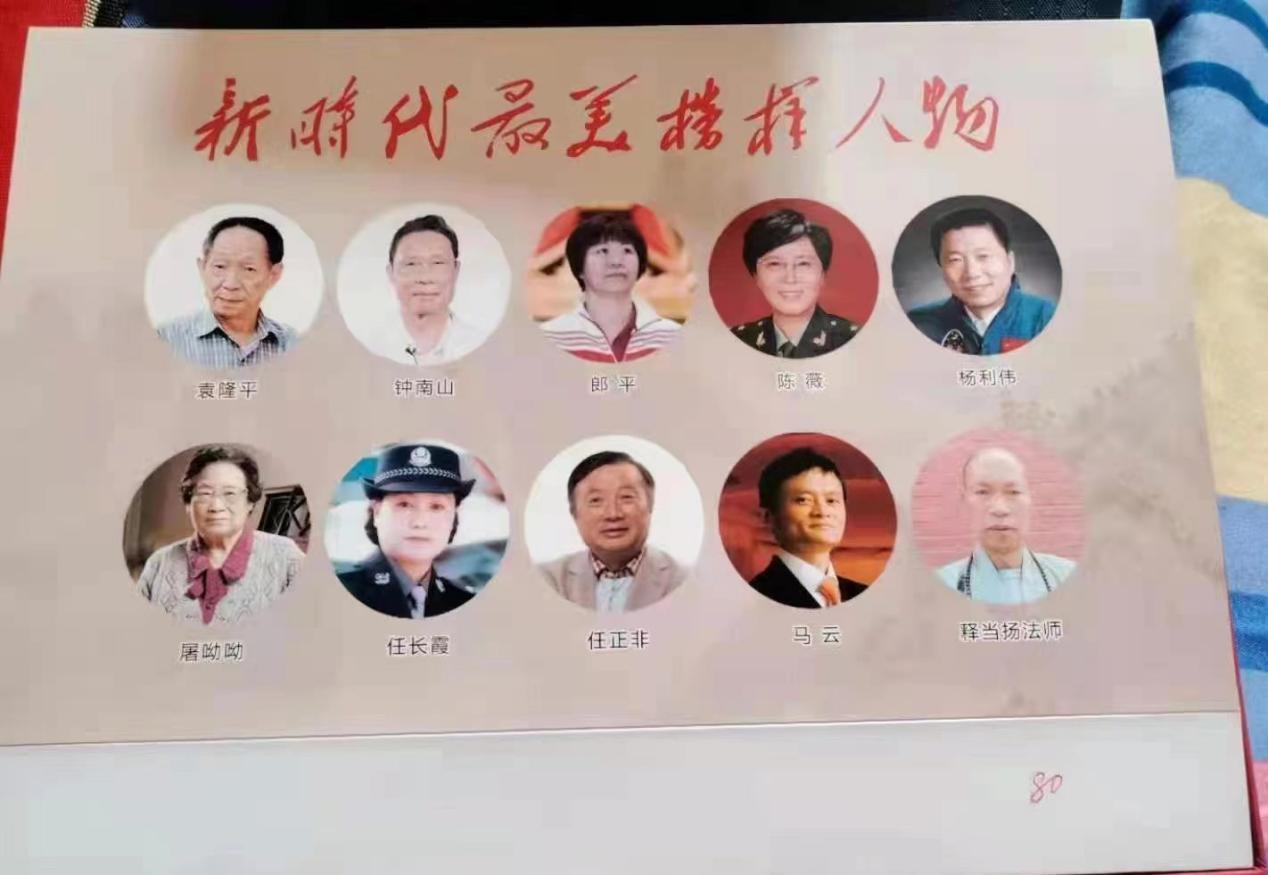 新時代最美榜样人物
袁隆平 钟南山 郎 平 陈 薇 杨利伟
屠呦呦 任长霞 任正非 马 云 释当扬法师
80